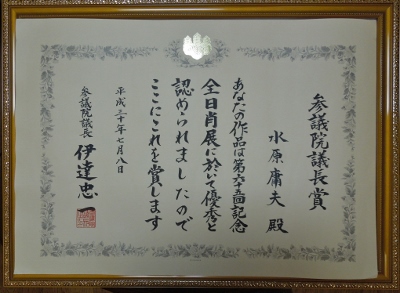 参議院議長賞
水原庸夫 殿
あなたの作品は第六十回記念
全日肖展に於いて優秀と
認められましたので
ここにこれを賞します
平成三十年七月八日
参議院議長
伊達忠一